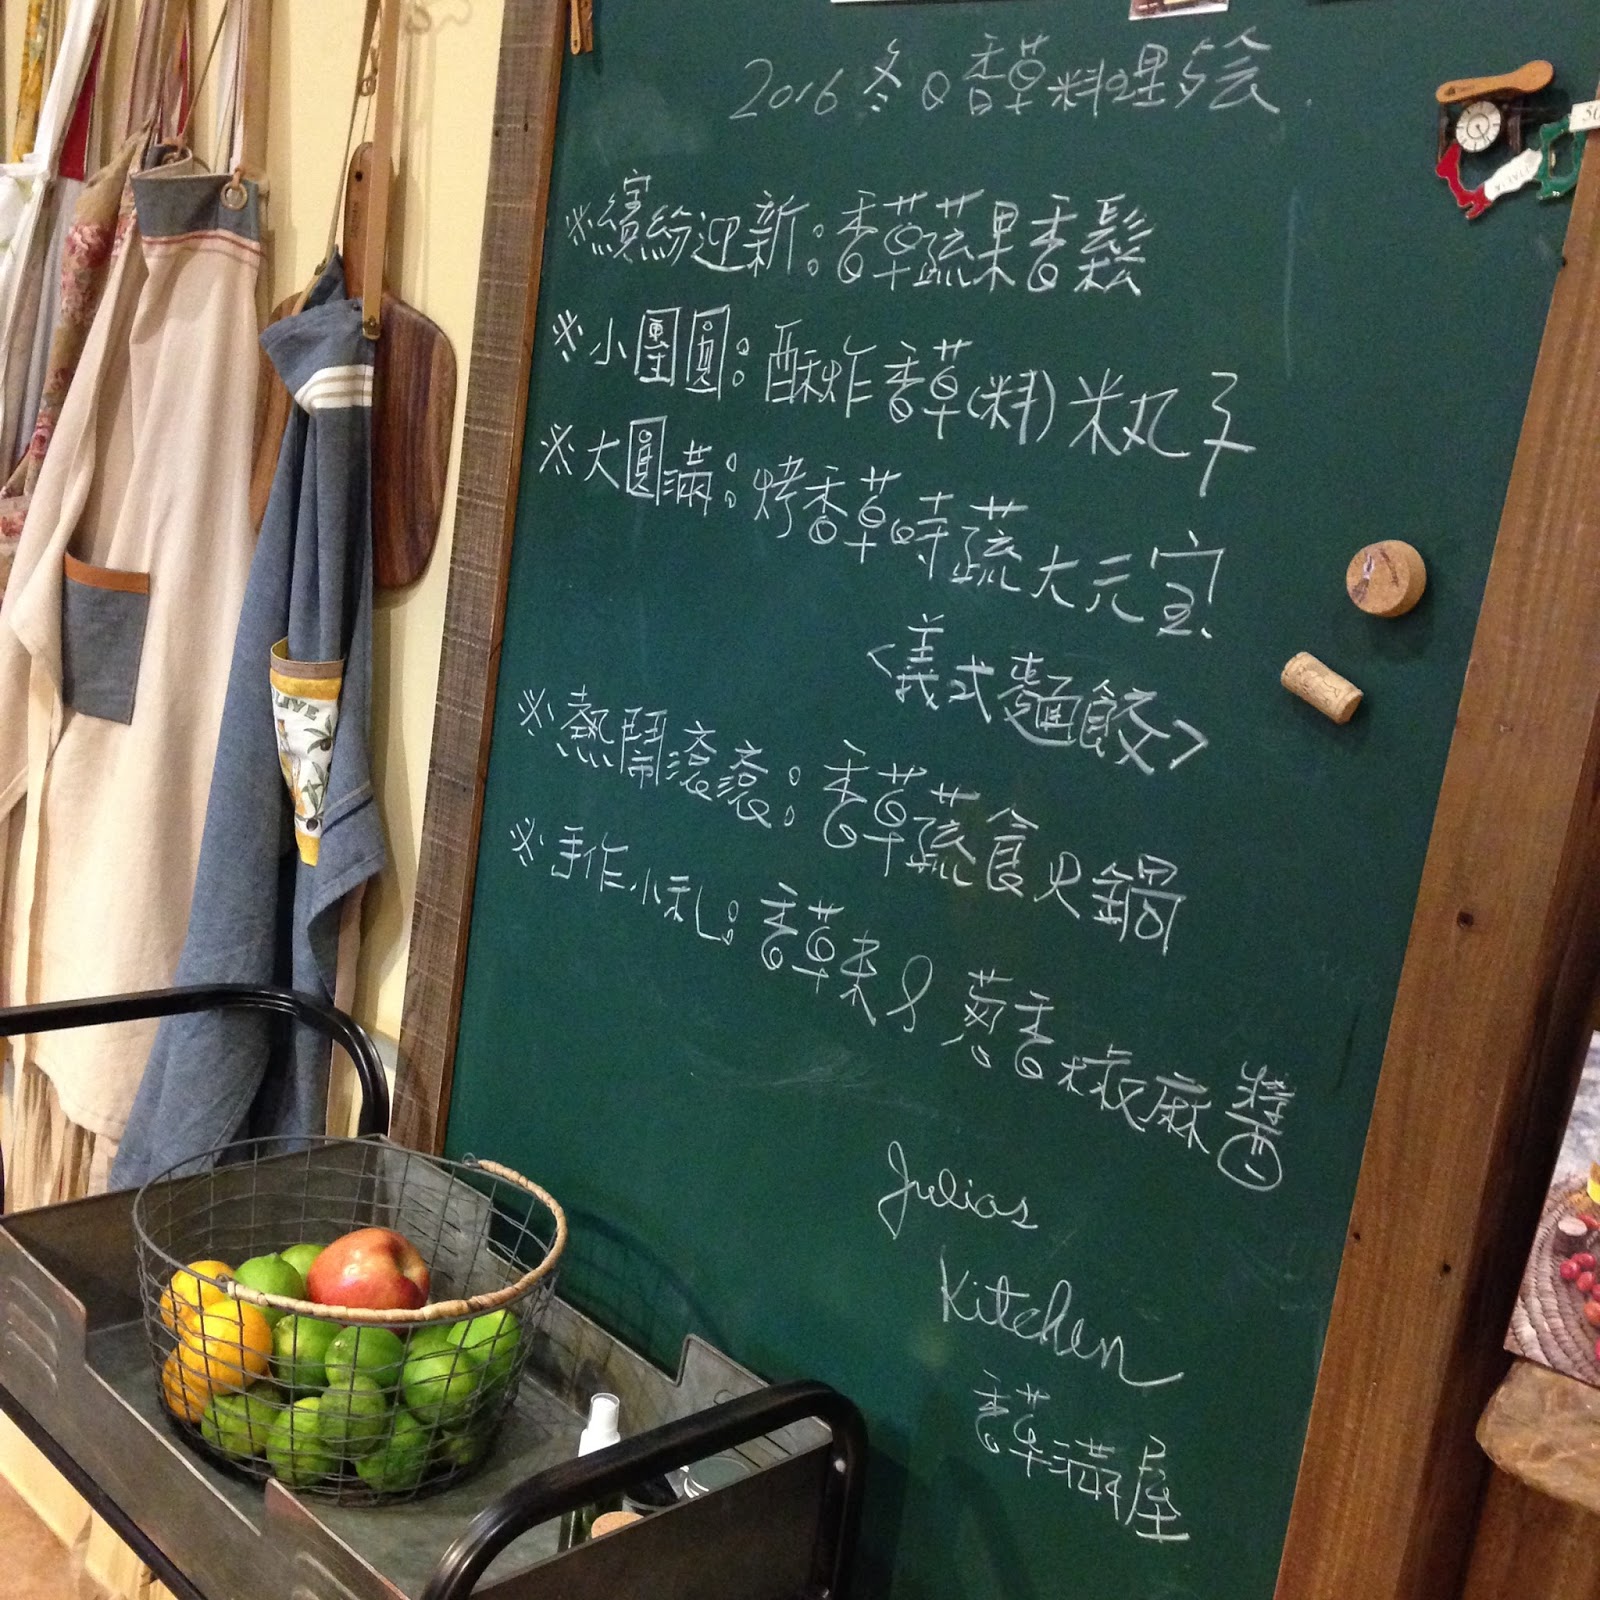 2016 冬日香草料理繪
※繽紛迎新：香草蔬果香鬆
※小團圓：酥炸香草(料)米丸子
※大圓滿：烤香草時蔬大元宝
<義式麵餃>
※熱鬧滾滾：香草蔬食火鍋
※手作小礼：香草束& 蔥香椒麻醬
Julias
Kitchen
香草滿屋